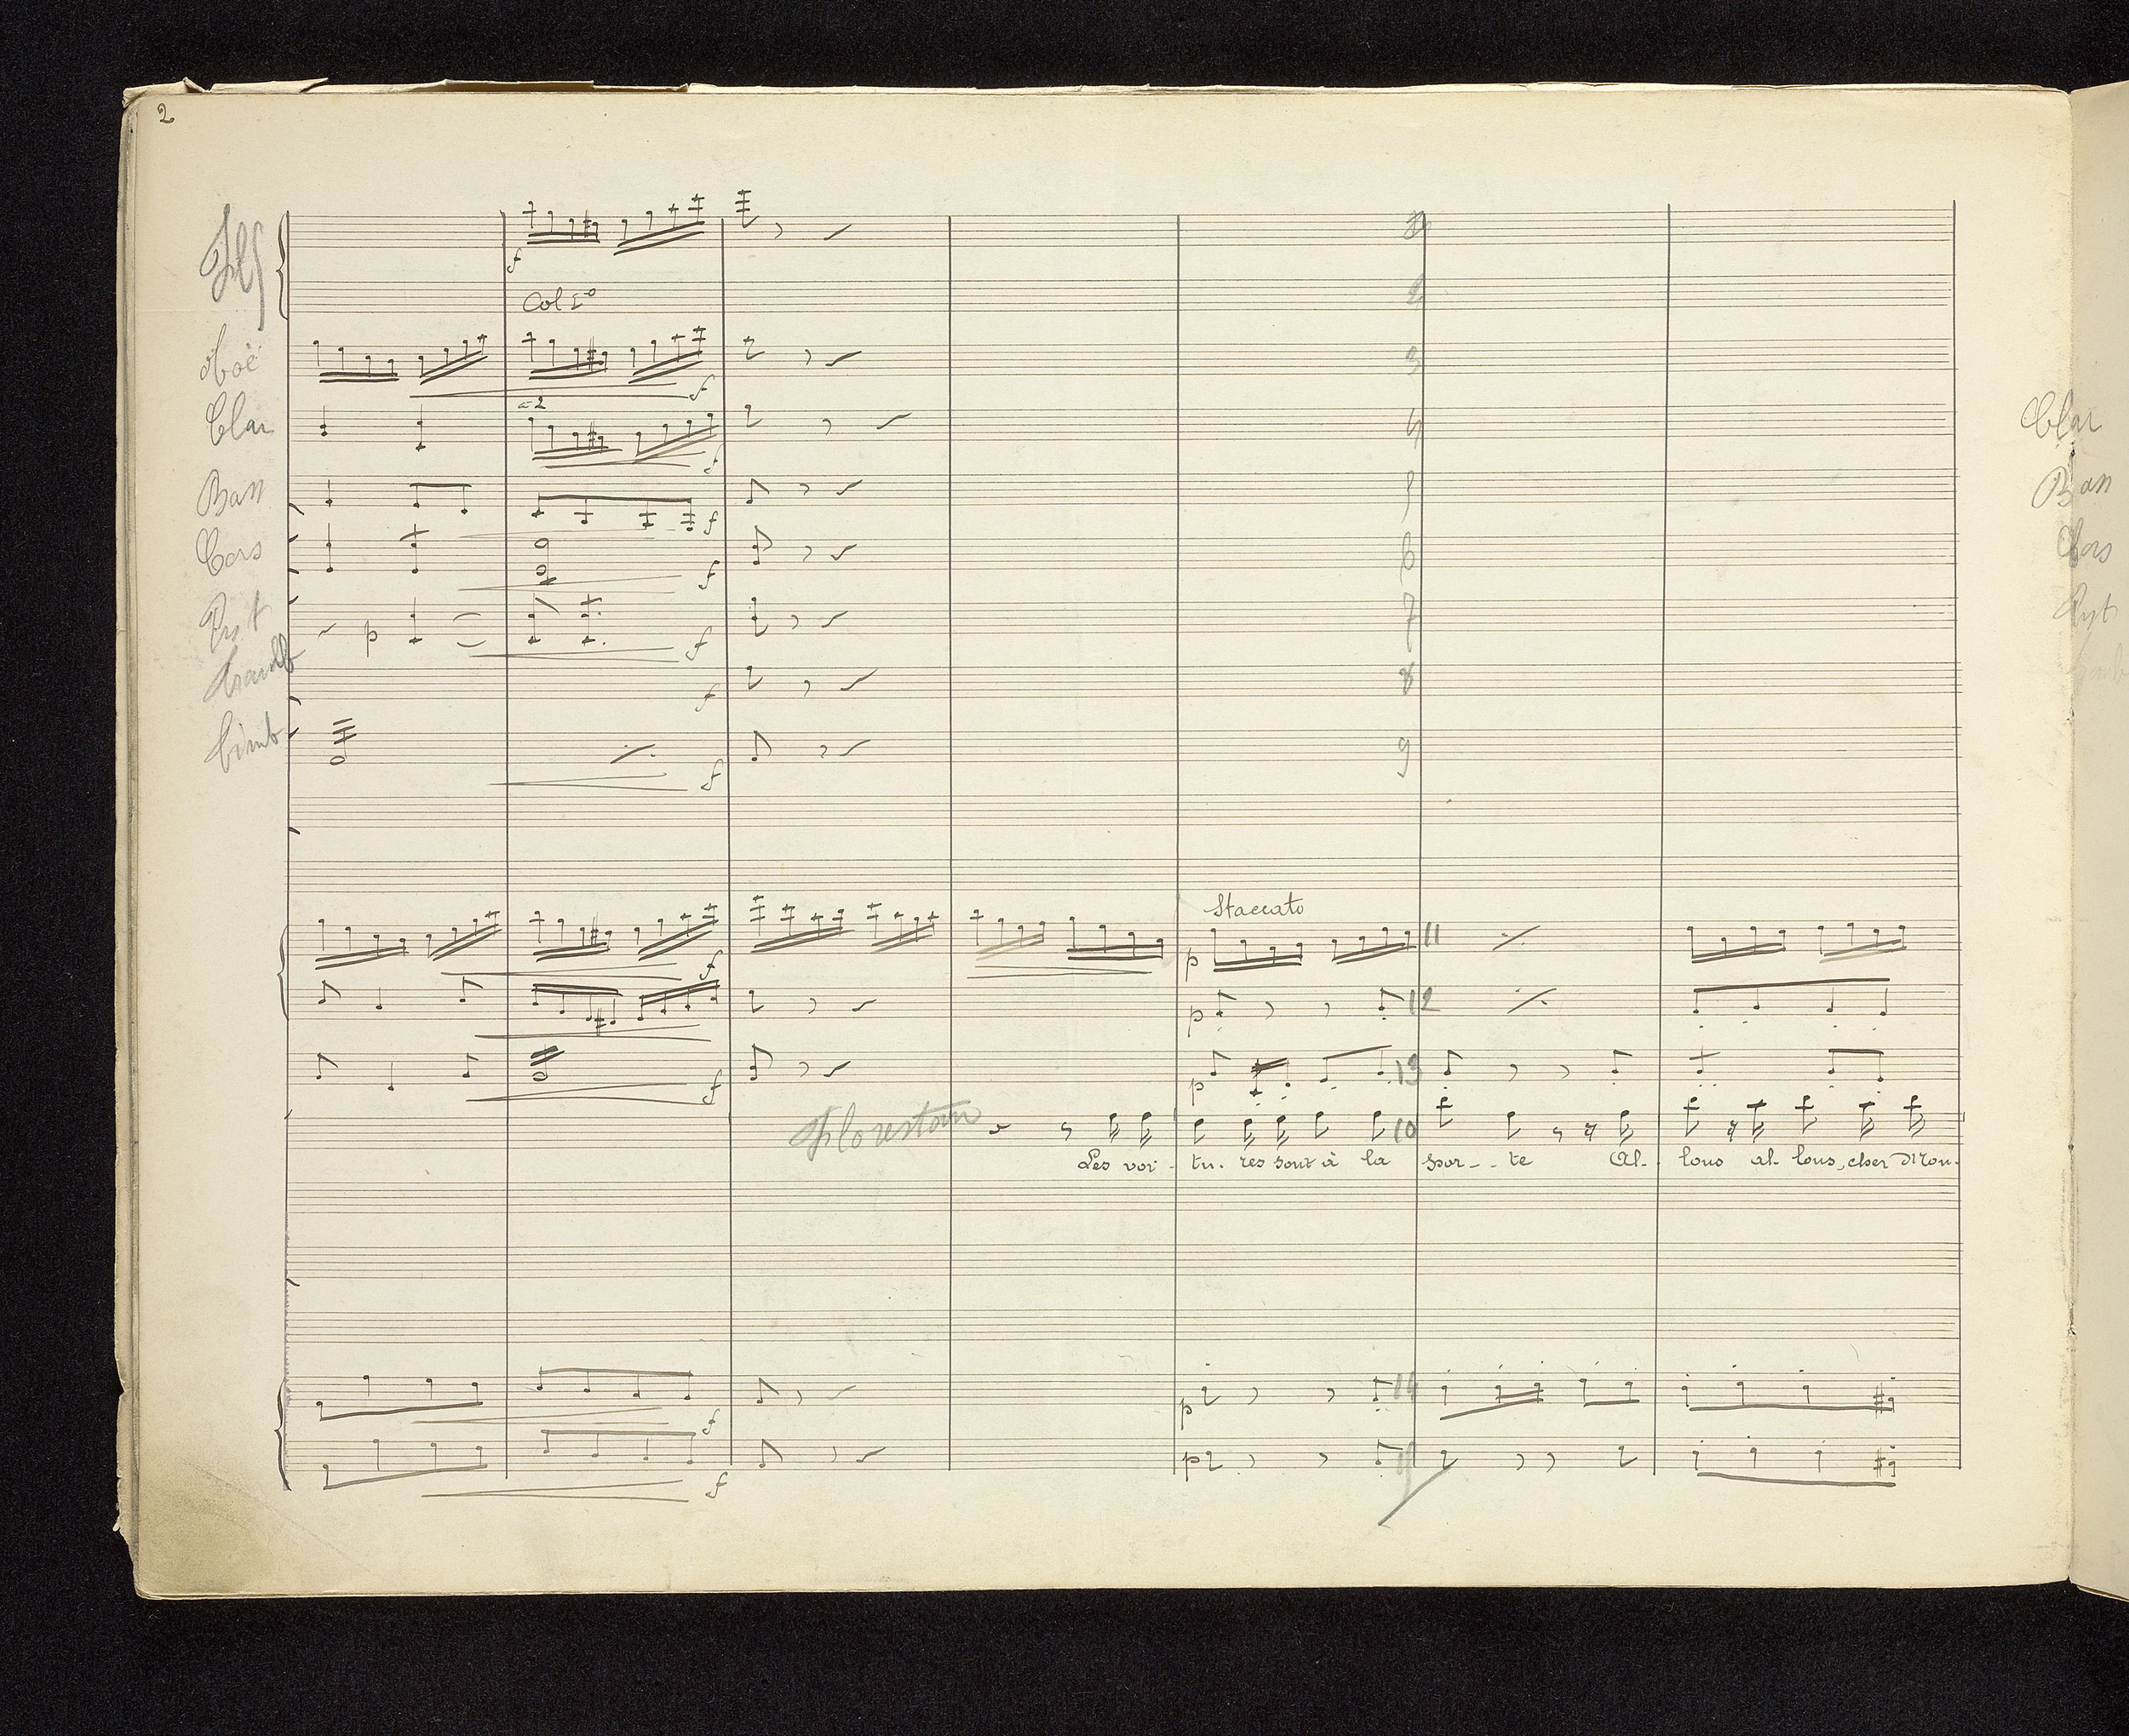 2
f
Col I°
Oboë
f
Clar
a 2
f
Clar
Bass
f
Cors
f
Cors
Pist
p
f
f
Timb
f
1
2
3
4
5
6
7
8
9
Staccato
f
p
11
p
12
f
p
13
Florestan
10
Les voi - tu - res sont à la por - - te Al - lons al - lons, cher Mon -
f
p
14
f
p
15